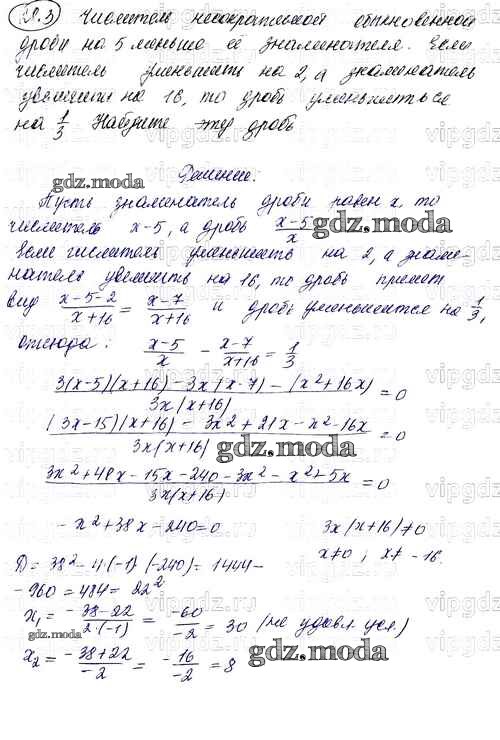 28.3) Числитель несократимой обыкновенной
дроби на 5 меньше её знаменателя. Если
числитель уменьшить на 2, а знаменатель
увеличить на 16, то дробь уменьшиться
на 1/3 Найдите эту дробь
Решение.
gdz.moda
Пусть знаменатель дроби равен x, то
числитель x-5, а дробь (x-5)/x
Если числитель уменьшить на 2, а знаме-
натель увеличить на 16, то дробь примет
вид (x-5-2)/(x+16) = (x-7)/(x+16) и дробь уменьшится на 1/3,
отсюда: (x-5)/x - (x-7)/(x+16) = 1/3
(3(x-5)(x+16)-3x(x-7)-(x²+16x))/(3x(x+16)) = 0
((3x-15)(x+16)-3x²+21x-x²-16x)/(3x(x+16)) = 0
gdz.moda
(3x²+48x-15x-240-3x²-x²+5x)/(3x(x+16)) = 0
-x²+38x-240=0 3x(x+16)≠0
Д=38²-4·(-1)·(-240)=1444- x≠0; x≠-16.
-960=484=22²
x₁=(-38-22)/(2·(-1)) = (-60)/(-2) = 30 (не удовл. усл.)
gdz.moda
x₂=(-38+22)/(-2) = (-16)/(-2) = 8
gdz.moda